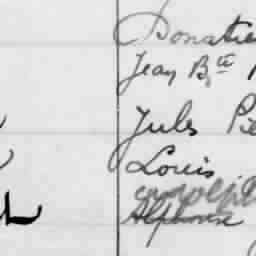 Donatie
Jean Bte
Jules Pie
Louis
Alphonse